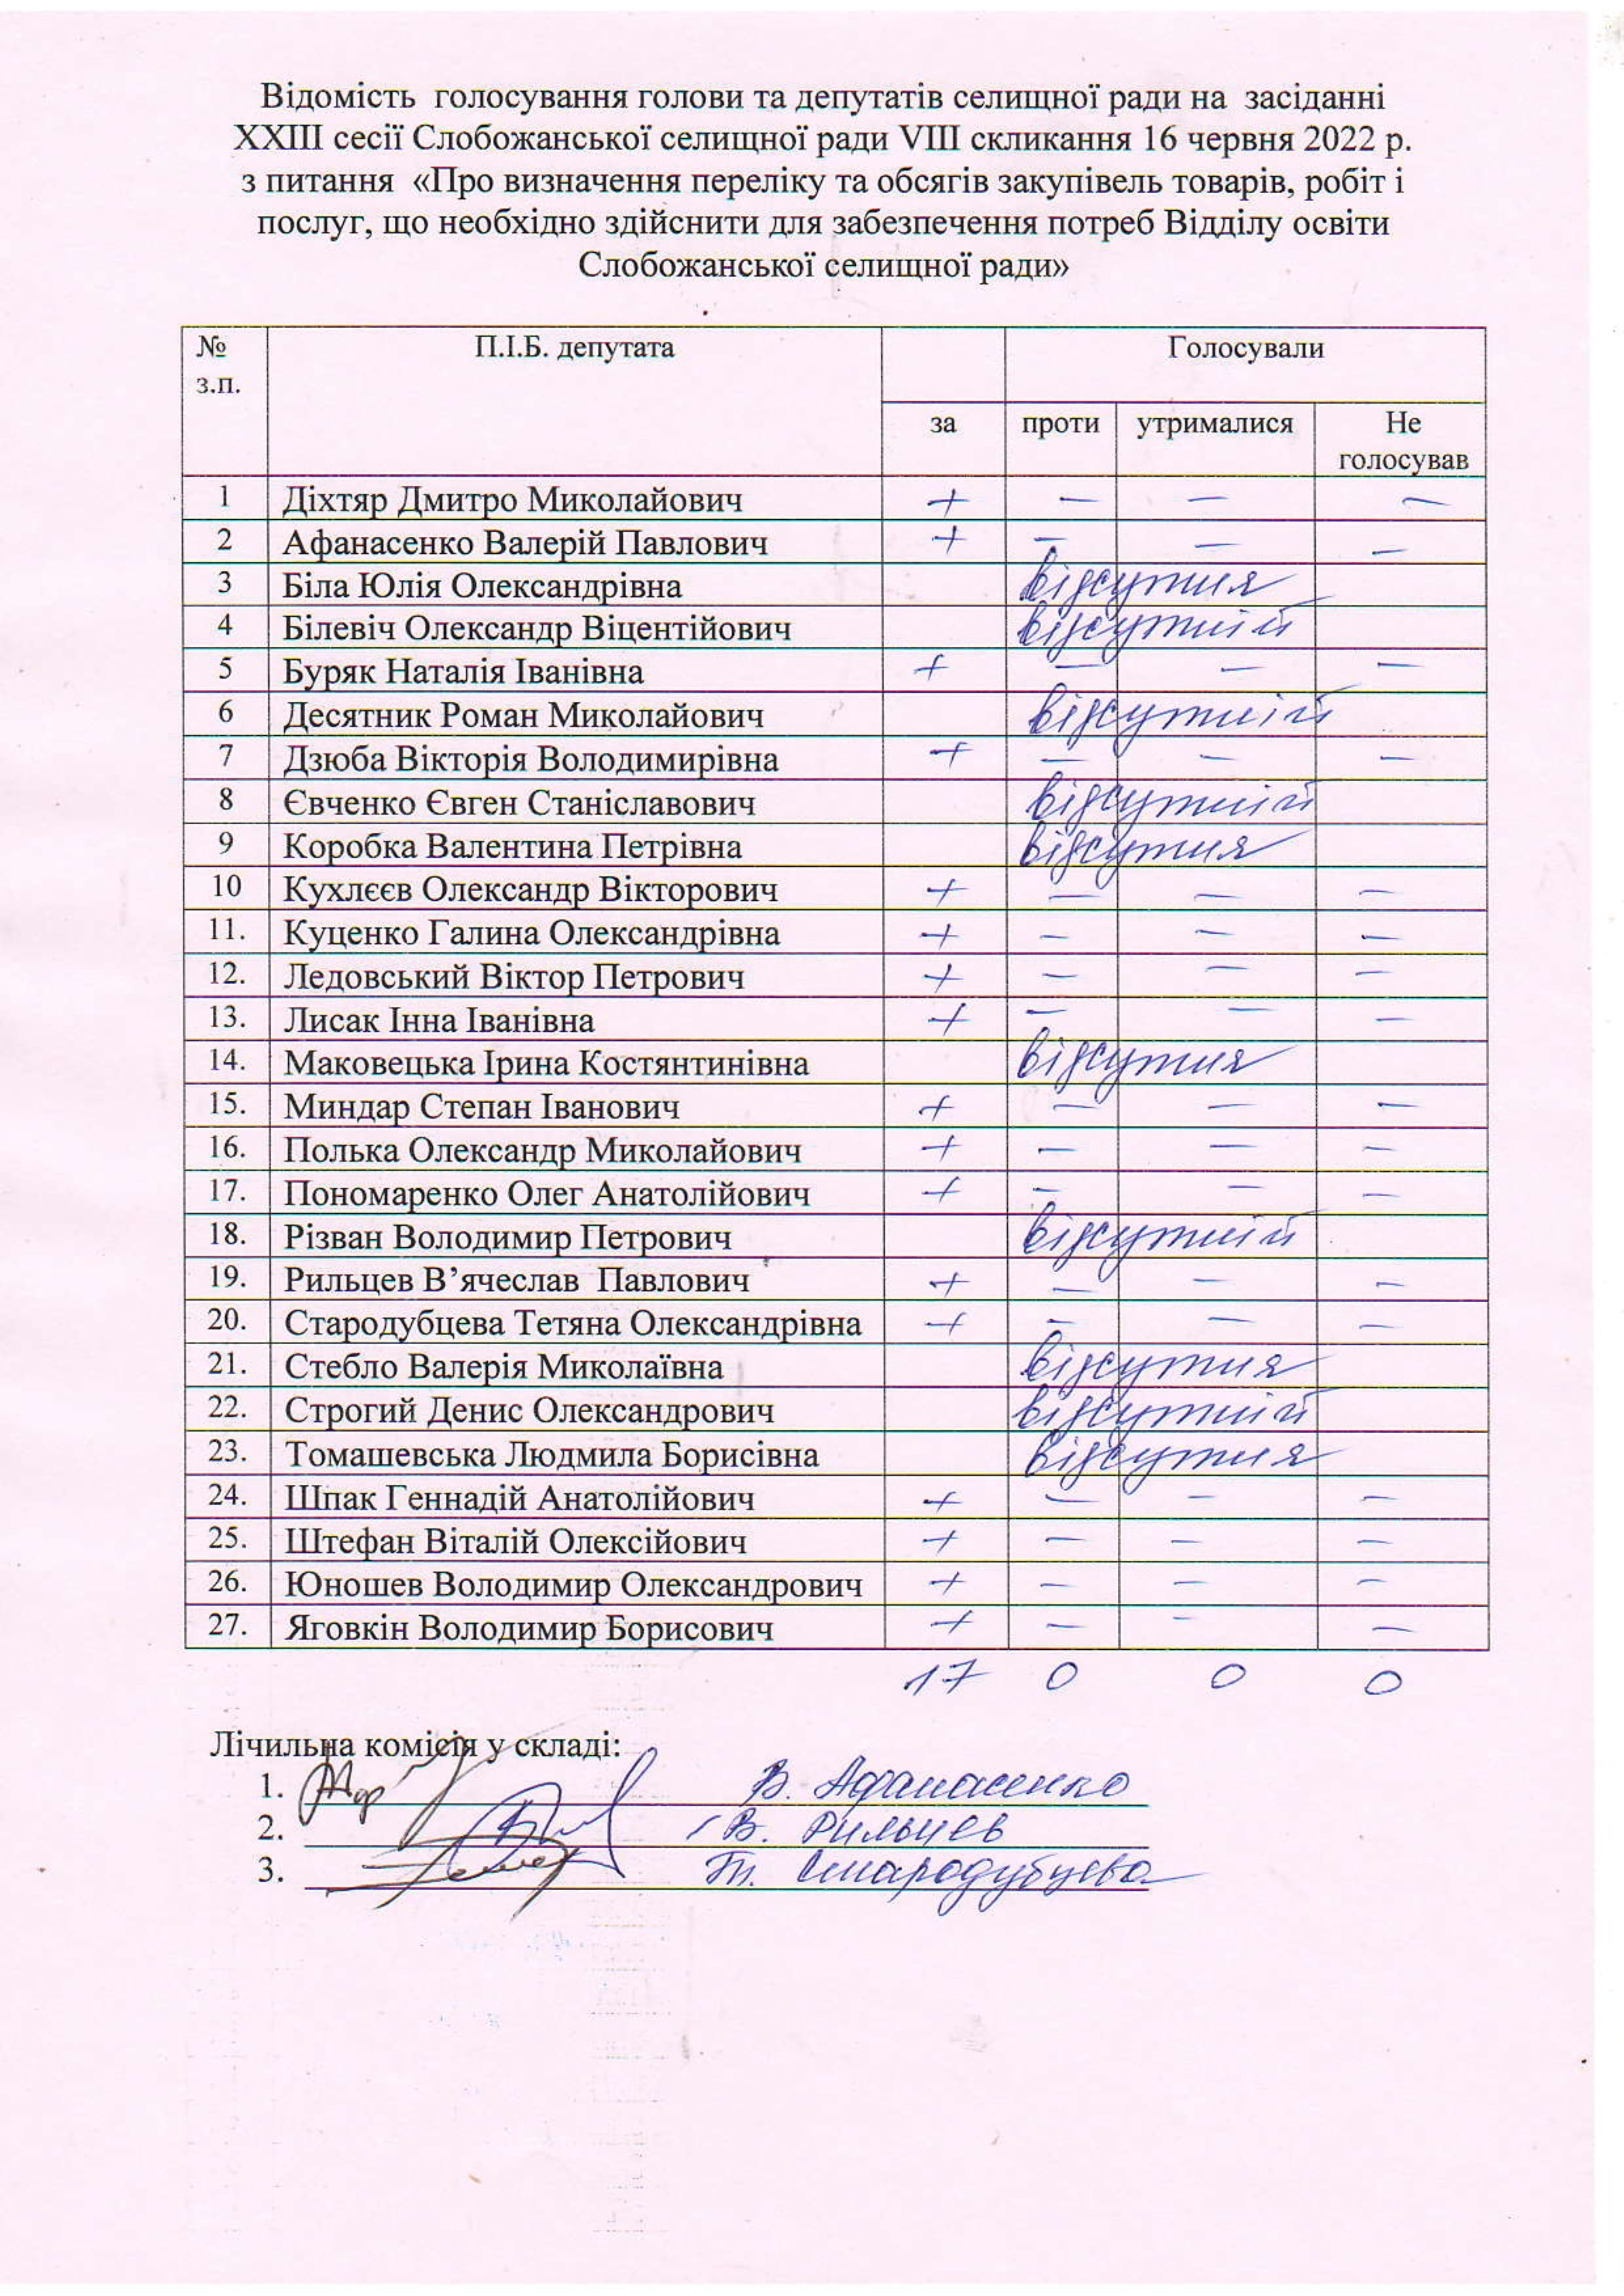 Відомість голосування голови та депутатів селищної ради на засіданні
XXIII сесії Слобожанської селищної ради VIII скликання 16 червня 2022 р.
з питання «Про визначення переліку та обсягів закупівель товарів, робіт і
послуг, що необхідно здійснити для забезпечення потреб Відділу освіти
Слобожанської селищної ради»
№ з.п. П.І.Б. депутата Голосували
за проти утрималися Не голосував
1 Діхтяр Дмитро Миколайович + — — —
2 Афанасенко Валерій Павлович + — — —
3 Біла Юлія Олександрівна відсутня
4 Білевіч Олександр Віцентійович відсутній
5 Буряк Наталія Іванівна + — — —
6 Десятник Роман Миколайович відсутній
7 Дзюба Вікторія Володимирівна + — — —
8 Євченко Євген Станіславович відсутній
9 Коробка Валентина Петрівна відсутня
10 Кухлєєв Олександр Вікторович + — — —
11. Куценко Галина Олександрівна + — — —
12. Ледовський Віктор Петрович + — — —
13. Лисак Інна Іванівна + — — —
14. Маковецька Ірина Костянтинівна відсутня
15. Миндар Степан Іванович + — — —
16. Полька Олександр Миколайович + — — —
17. Пономаренко Олег Анатолійович + — — —
18. Різван Володимир Петрович відсутній
19. Рильцев В’ячеслав Павлович + — — —
20. Стародубцева Тетяна Олександрівна + — — —
21. Стебло Валерія Миколаївна відсутня
22. Строгий Денис Олександрович відсутній
23. Томашевська Людмила Борисівна відсутня
24. Шпак Геннадій Анатолійович + — — —
25. Штефан Віталій Олексійович + — — —
26. Юношев Володимир Олександрович + — — —
27. Яговкін Володимир Борисович + — — —
17 0 0 0
Лічильна комісія у складі:
1. В. Афанасенко
2. В. Рильцев
3. Т. Стародубцева